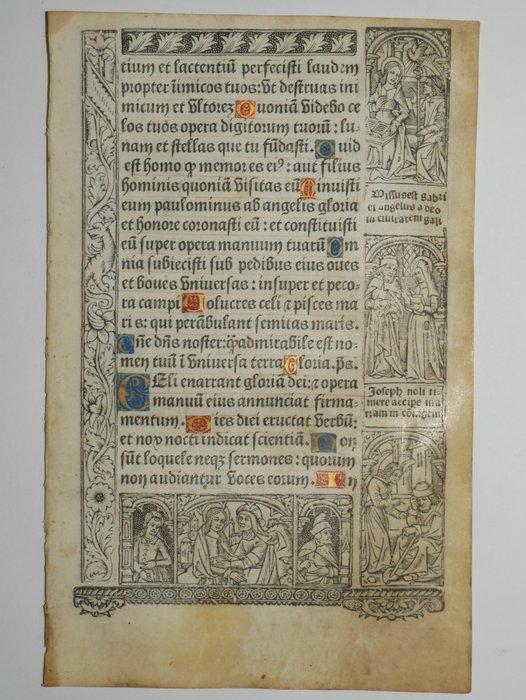 tium et lactentiū perfecisti laudem
propter inimicos tuos: vt destruas ini
micum et vltorez Quoniā videbo ce
los tuos opera digitorum tuorū: lu-
nam et stellas que tu fūdasti. Quid
est homo ꝙ memor es eiꝰ: aut filius
hominis quoniā visitas eū Minuisti
eum paulominus ab angelis gloria
et honore coronasti eū: et constituisti
eū super opera manuum tuarū Om
nia subiecisti sub pedibus eius oues
et boues vniuersas: insuper et peco-
ra campi Volucres celi ⁊ pisces ma
ris: qui perābulant semitas maris.
Dñe dn̄s noster: q̄ admirabile est no-
men tuū ī vniuersa terra Gloria. ps.
Celi enarrant gloriā dei: ⁊ opera
manuū eius annunciat firma-
mentum. Dies diei eructat verbū:
et nox nocti indicat scientiā. Non
sūt loquele neqz sermones: quorum
non audiantur voces eorum. In
Missus est gabri
el angelus a deo
in ciuitatem gali
Joseph noli ti-
mere accipe ma
riam in coniugem